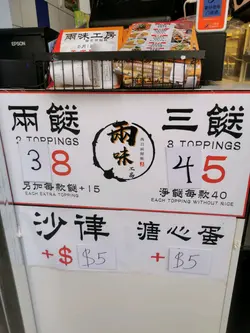 EPSON
兩味工房
兩餸
2 TOPPINGS
38
另加每款餸+15
EACH EXTRA TOPPING
兩味
工房
三餸
3 TOPPINGS
45
淨餸每款40
EACH TOPPING WITHOUT RICE
沙律
+$ $5
溏心蛋
+ $5